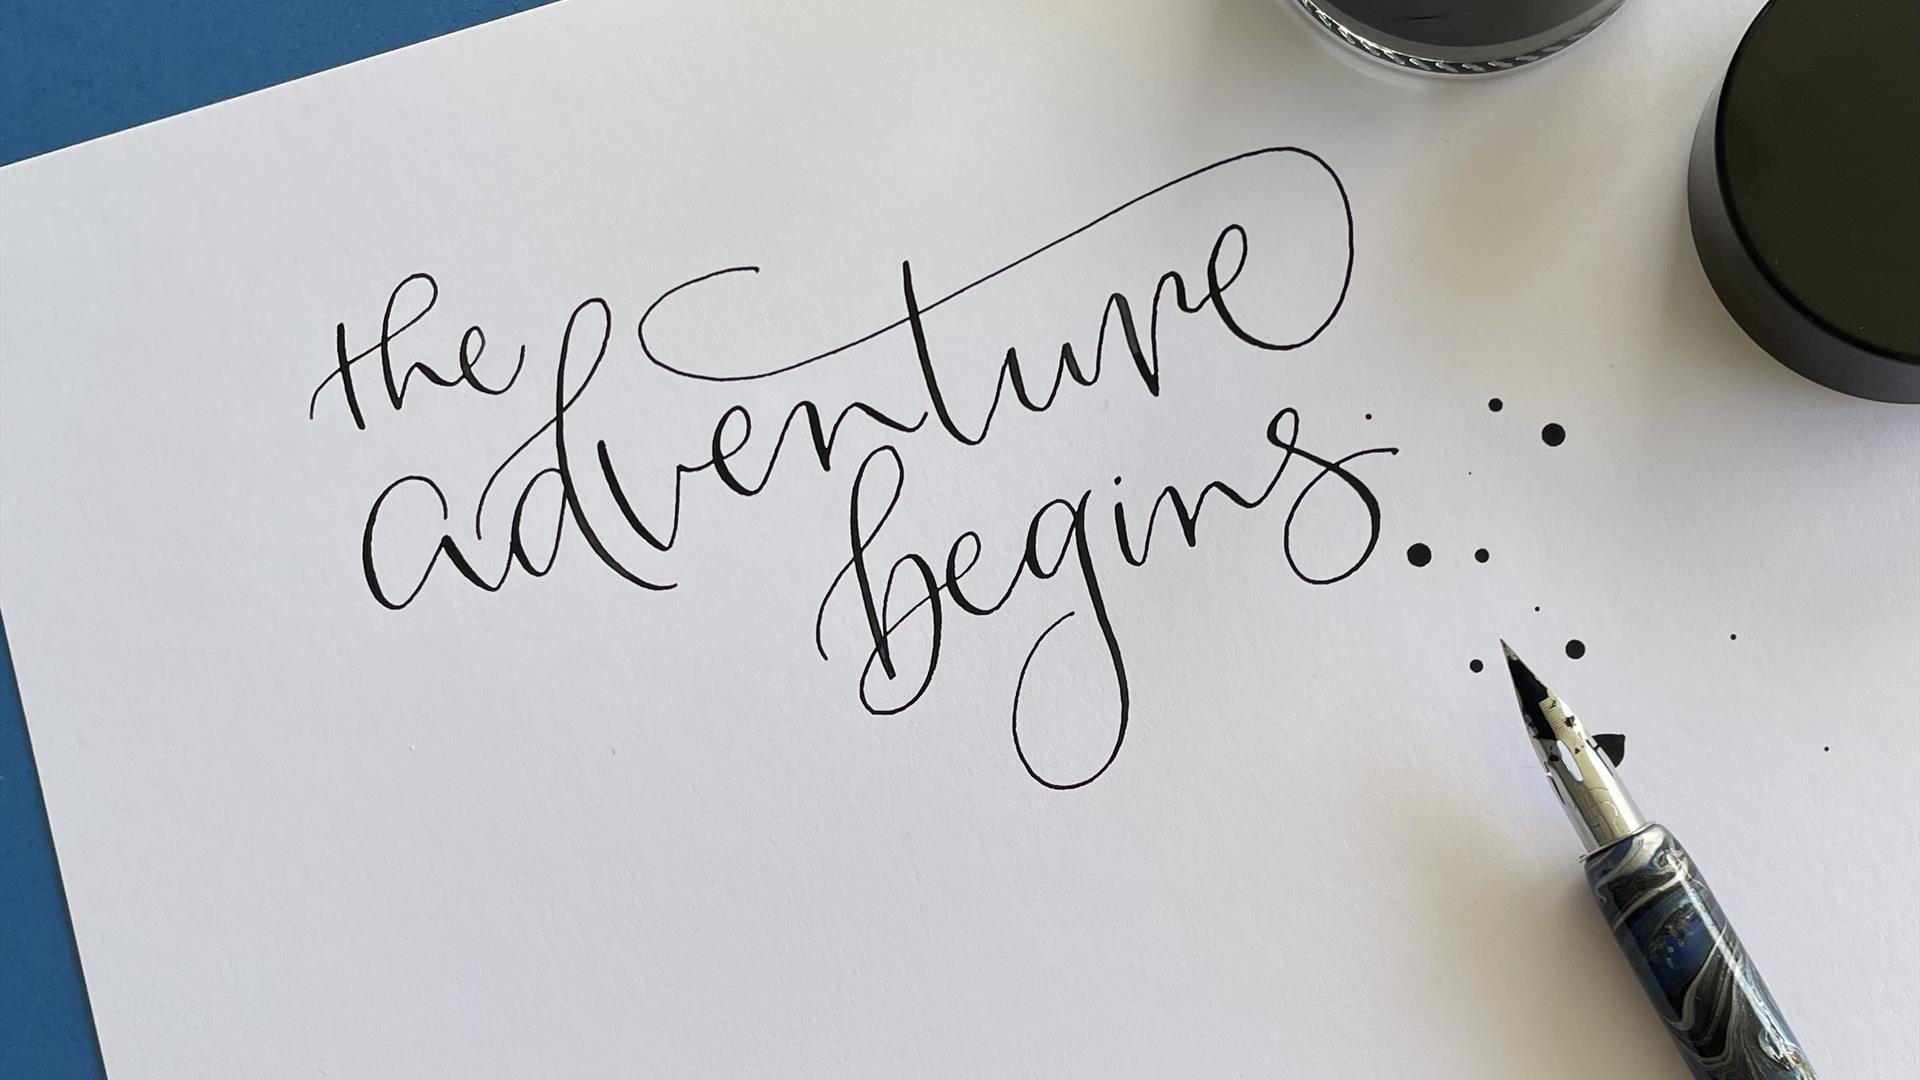 the
adventure
begins